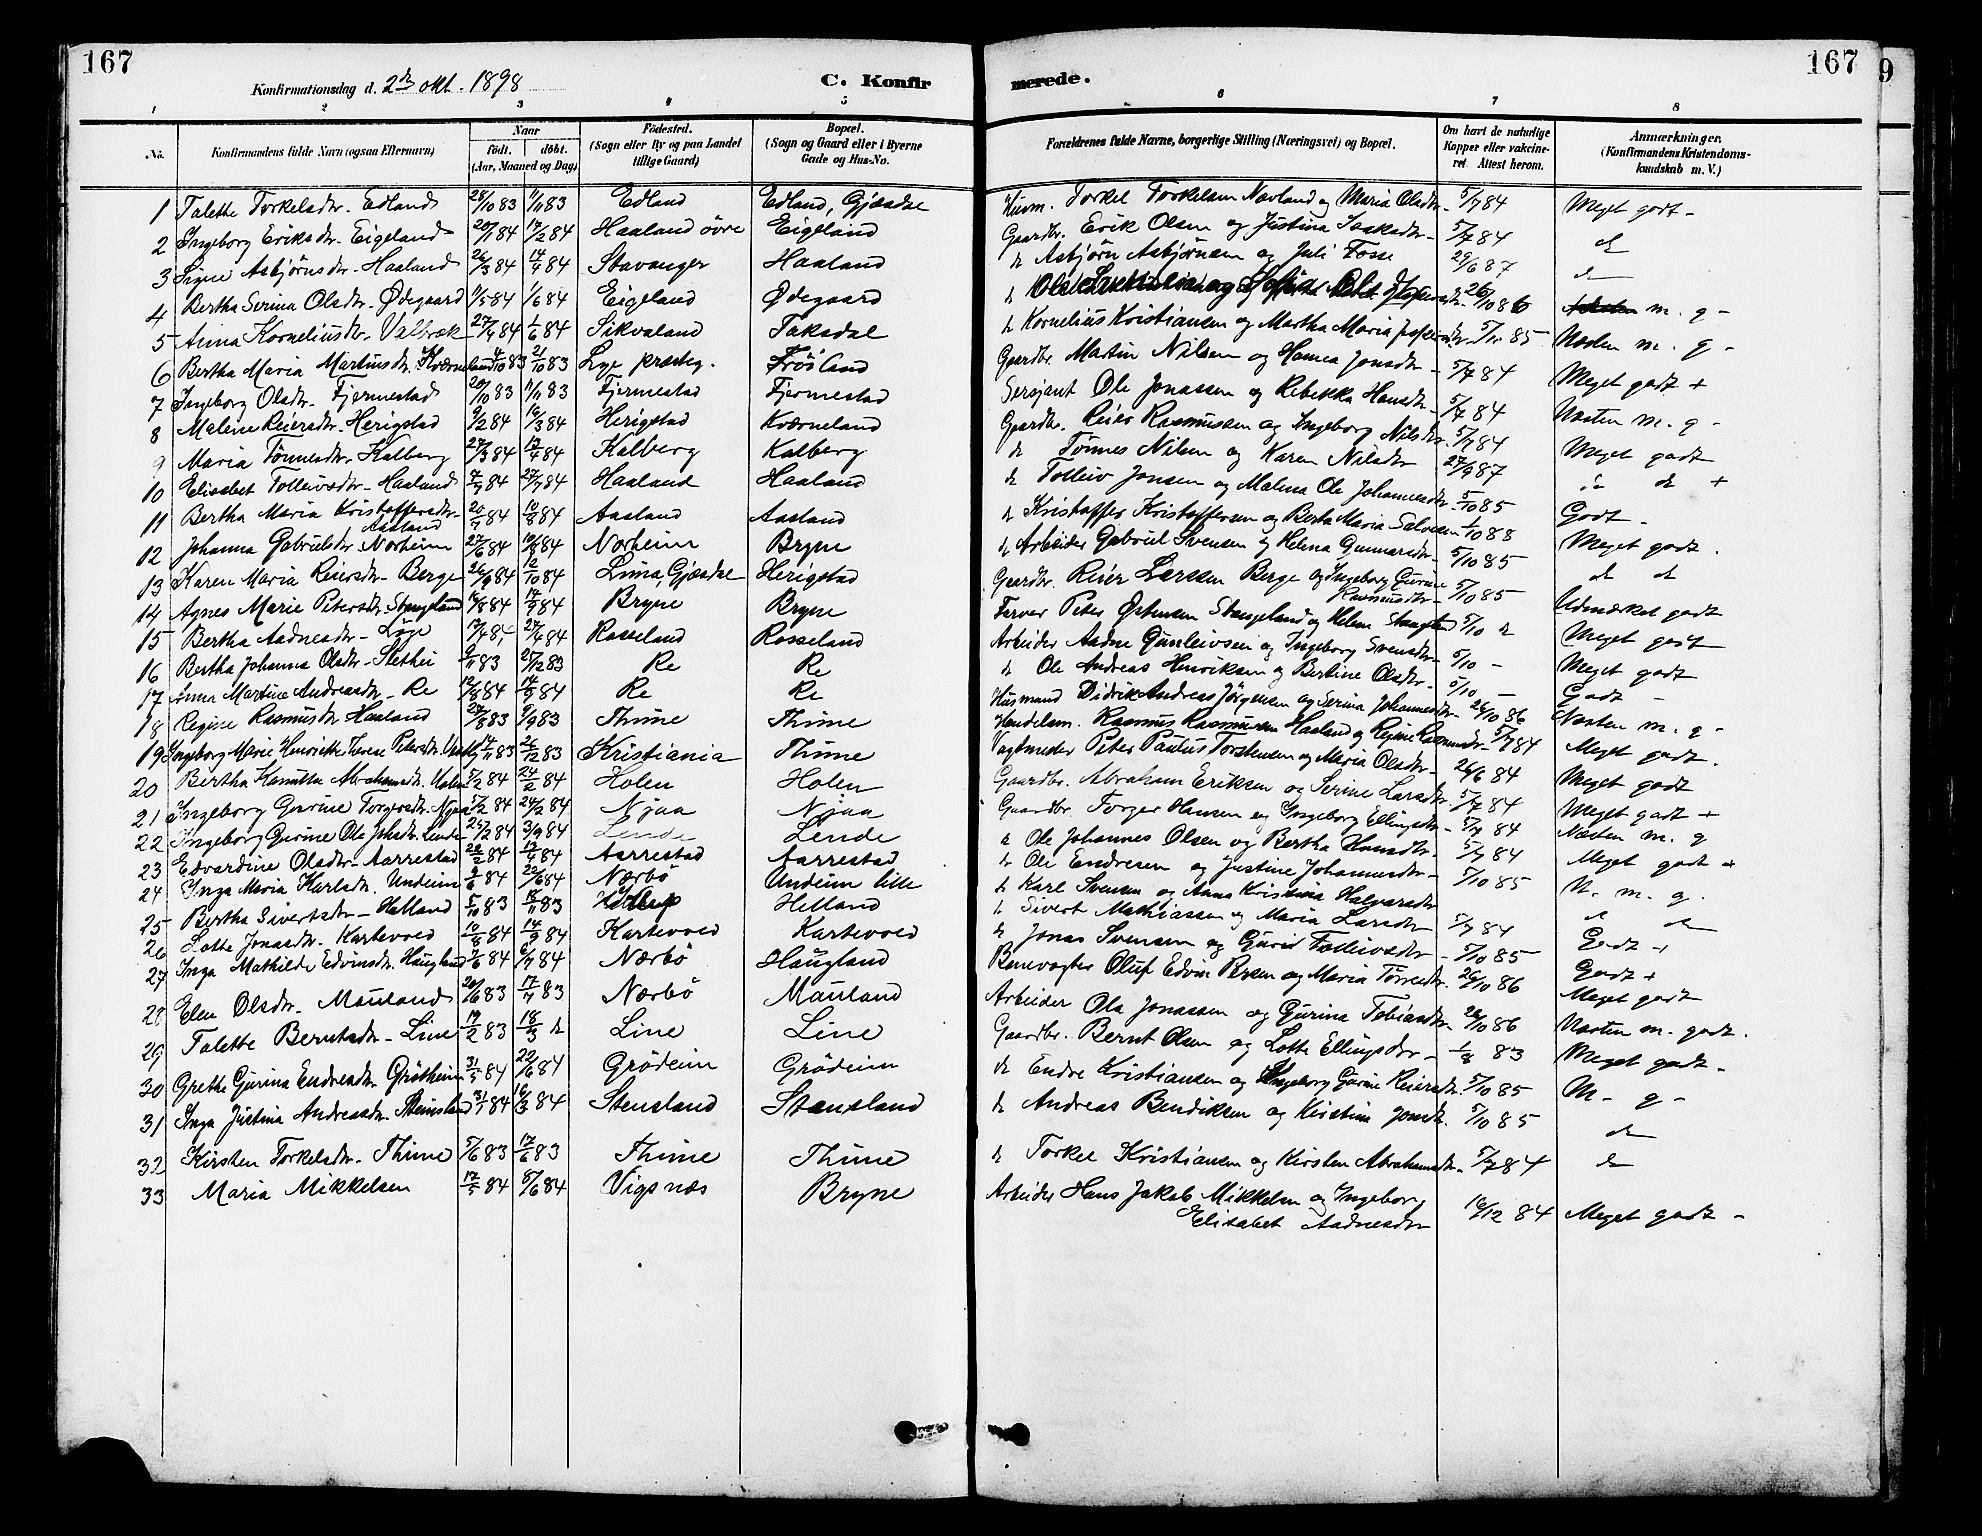 167
167
9
Konfirmationsdag d. 2de okt. 1898
C. Konfirmerede.
1 2 3 4 5 6 7 8
No.
Konfirmandens fulde Navn (ogsaa Efternavn)
Naar født. døbt. (Aar, Maaned og Dag)
Fødested. (Sogn eller By og paa Landet tillige Gaard)
Bopæl. (Sogn og Gaard eller i Byerne Gade og Hus-No.
Forældrenes fulde Navne, borgerlige Stilling (Næringsvei) og Bopæl.
Om havt de naturlige Kopper eller vakcineret. Attest herom.
Anmærkninger. (Konfirmandens Kristendomskundskab m. V.)
1 Talette Torkelsdtr. Edland 28/10 83 11/11 83 Edland Edland, Gjesdal Husm. Torkel Torkelsen Nævland og Maria Olsdtr. 5/7 84 Meget godt -
2 Ingeborg Eriksdtr. Eigeland 20/1 84 17/2 84 Haaland övre Eigeland Gaardbr. Erik Olsen og Justina Isaksdtr - 5/7 84 do
3 Signe Asbjørnsdtr. Haaland 26/3 84 14/4 84 Stavanger Haaland do Asbjørn Asbjørnsen og Juli Fosse 29/6 87 do
4 Bertha Serina Olsdtr. Ødegaard 11/5 84 1/6 84 Eigeland Ødegaard do 26/10 86 m. g -
5 Anna Korneliusdtr. Valbræk 27/4 84 1/6 84 Sikvaland Taksdal do Kornelius Kristiansen og Martha Maria Jespersdtr. 5/10 85 Næsten m. g -
6 Bertha Maria Martinsdtr. Kværneland 4/10 83 21/10 83 Lye præsteg. Fröiland Gaardbr. Martin Nilsen og Hanna Jonsdtr - 5/7 84 Meget godt +
7 Ingeborg Olsdtr. Fjermestad 20/10 83 11/11 83 Fjermestad Fjermestad Sersjant Ole Jonassen og Rebekka Hansdtr - 5/7 84 Næsten m. g -
8 Malene Reiersdtr. Herigstad 9/2 84 16/3 84 Herigstad Kværneland Gaardbr. Reier Rasmussen og Ingeborg Nilsdtr. 5/7 84 Meget godt
9 Maria Tønnesdtr. Kalberg 27/3 84 13/4 84 Kalberg Kalberg do Tønnes Nilsen og Karen Nilsdtr 27/9 87 do do +
10 Elisabet Tolleivsdtr. Haaland 7/7 84 27/7 84 Haaland Haaland do Tolleiv Jonsen og Malena Ole Johannesdtr. 5/10 85 Godt -
11 Bertha Maria Kristoffersdtr. Aasland 20/7 84 10/8 84 Aasland Aasland do Kristoffer Kristoffersen og Berta Maria Salvesen 1/10 88 Meget godt.
12 Johanna Gabrielsdtr. Norheim 27/6 84 10/8 84 Norheim Bryne do Arbeider Gabriel Svensen og Helena Gunnarsdtr - 5/10 85 do do
13 Karen Maria Reiersdtr. Berge 26/9 84 12/10 84 Lima, Gjesdal Herigstad Gaardbr. Reier Larsen Berge og Ingeborg Gurine Rasmusdtr - 5/10 85 Udmærket godt
14 Agnes Marie Petersdtr. Stangeland 16/8 84 14/9 84 Bryne Bryne Farver Peter Østensen Stangeland og Helene Stangeland 5/10 do Meget godt
15 Bertha Aadnesdtr. Lyge 84 27/4 84 Rosseland Rosseland Arbeider Aadne Gunleivsen og Ingeborg Svensdtr - 5/10 - Meget godt
16 Bertha Johanna Olsdtr. Slethei 9/11 83 25/12 83 Re Re do Ole Andreas Henriksen og Bertine Olsdtr. 5/10 - Godt -
17 Anna Martine Andreasdtr. Re 12/8 84 14/9 84 Re Re Husmand Didrik Andreas Jörgensen og Serina Johannesdtr 26/10 86 Næsten m. g -
18 Regine Rasmusdtr. Haaland 27/8 83 9/9 83 Thime Thime Handelsm. Rasmus Rasmussen Haaland og Regine Rasmusdtr - 5/7 84 Meget godt.
19 Ingeborg Marie Henriette Therese Petersdtr. 14/11 83 26/12 83 Kristiania Thime Vagtmester Peter Paulus Torstensen og Maria Olsdtr - 26/6 84 Meget godt
20 Bertha Kamilla Abrahamsdtr. Holen 5/2 84 24/2 84 Holen Holen Gaardbr. Abraham Eriksen og Serine Larsdtr 5/7 84 Meget godt +
21 Ingeborg Gurine Torgersdtr. Njaa 5/2 84 24/2 84 Njaa Njaa Gaardbr Torger Hansen og Ingeborg Ellingsdtr - 5/7 84 Næsten m. g
22 Ingeborg Gurine Ole Johsdtr. Lende 24/2 84 3/9 84 Lende Lende do Ole Johannes Olsen og Bertha Hansdtr - 5/7 84 Meget godt +
23 Edvardine Olsdtr. Aarrestad 28/2 84 13/4 84 Aarrestad Aarrestad do Ole Endresen og Justine Johannesdtr - 5/10 85 N. m. g.
24 Inga Maria Karlsdtr. Undeim 2/6 84 22/6 84 Nærbö Undeim lille do Karl Svensen og Anna Kristina Halvorsdtr do do
25 Bertha Sivertsdtr. Helland 5/10 83 18/11 83 Helland do Sivert Mathiassen og Maria Larsdtr 5/7 84 Godt +
26 Lotte Jonasdtr. Kartevold 10/8 84 14/9 84 Kartevold Kartevold do Jonas Svensen og Gurid Tolleivsdtr - 5/10 85 Godt +
27 Inga Mathilde Edvinsdtr. Haugland 7/6 84 6/7 84 Nærbö Haugland Banevogter Oluf Edvin Persen og Maria Torresdtr. 26/10 86 Meget godt
28 Elen Olsdtr. Mauland 20/6 83 17/7 83 Nærbö Mauland Arbeider Ola Jonassen og Gurina Tobiasdtr. 26/10 86 Næsten m. godt.
29 Talette Berntsdtr. Line 19/2 83 18/3 do Line Line Gaardbr. Bernt Olsen og Lotte Ellingsdtr - 1/8 83 Meget godt -
30 Grethe Gurina Endresdtr. Grötheim 31/5 84 22/6 84 Grödeim Grödeim do Endre Kristiansen og Ingeborg Gurine Reiersdtr. 5/10 85 M. g -
31 Inga Justina Andreasdtr. Stensland 31/1 84 16/3 84 Stensland Stensland do Andreas Bendiksen og Kirstine Jonsdtr. 5/10 85 do
32 Kirsten Torkelsdtr. Thime 5/6 83 17/6 83 Thime Thime do Torkel Kristiansen og Kirsten Abrahamsdtr. 5/7 84 do
33 Maria Mikkelsen 12/5 84 5/6 84 Vigsnæs Bryne Arbeider Hans Jakob Mikkelsen og Ingeborg Elisabet Aadnesdtr 16/12 84 Meget godt -